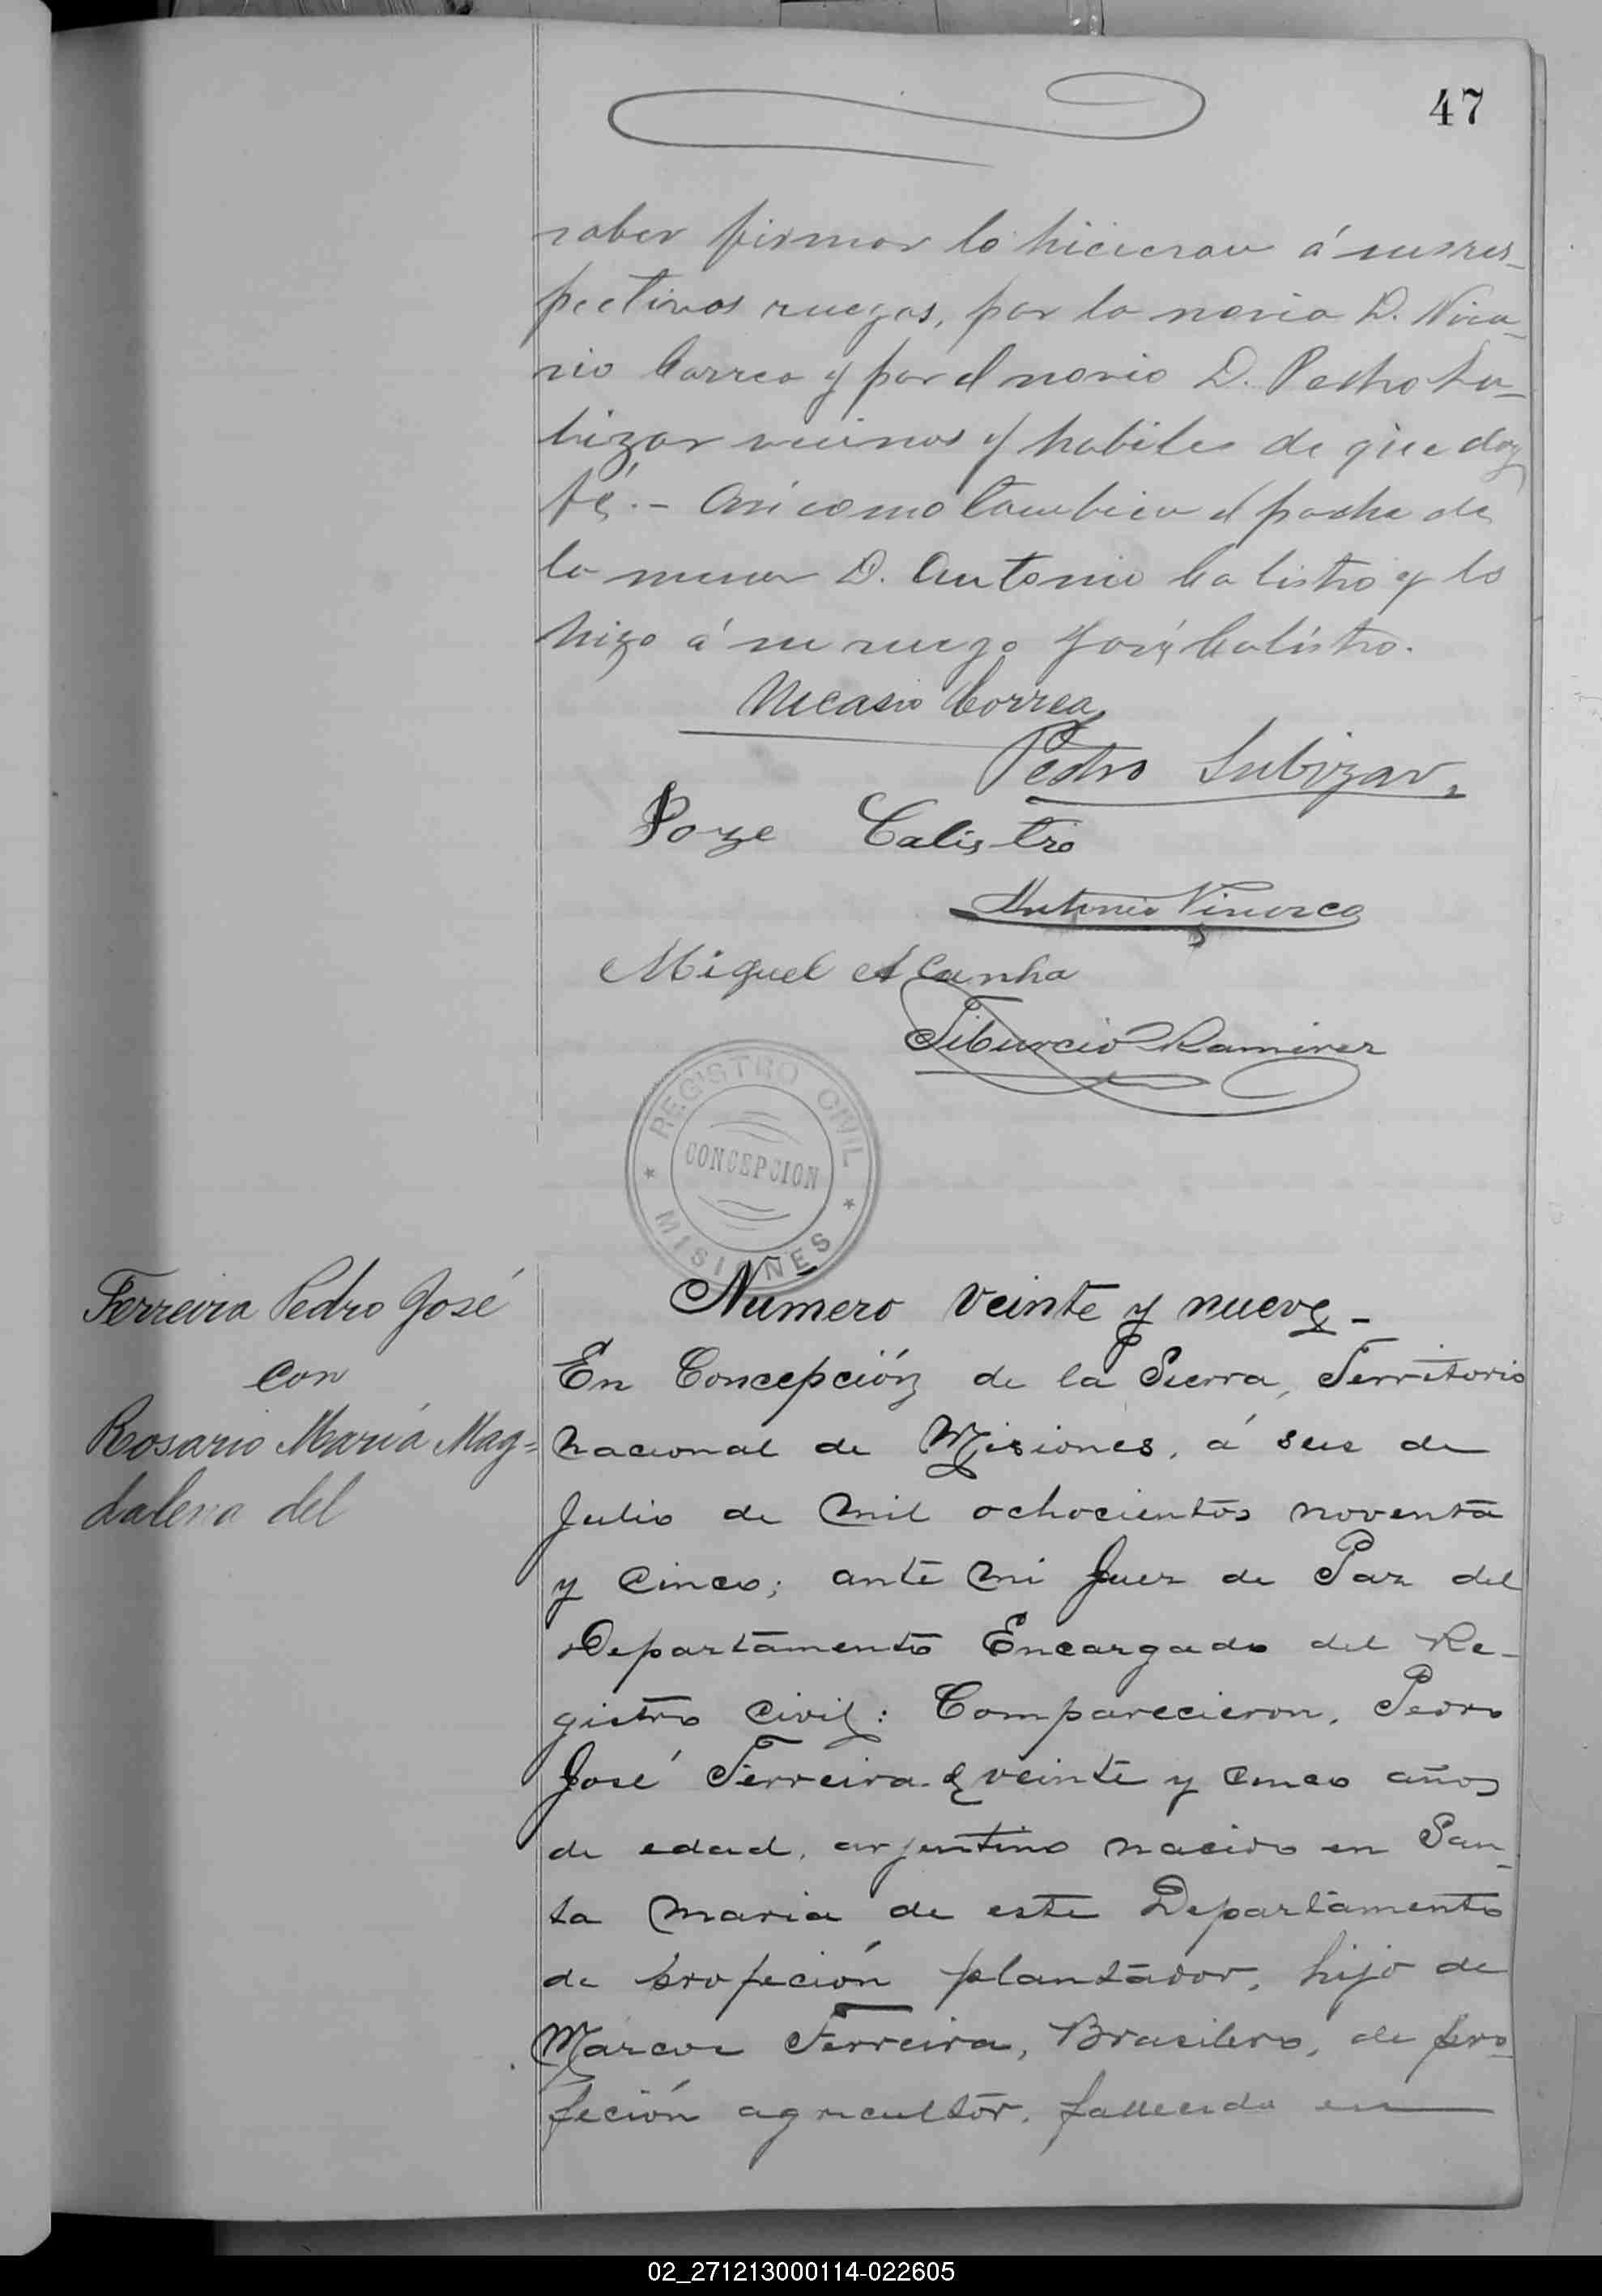 47
saber firmar lo hicieron á sus res-
pectivos ruegos, por la novia D. Nica-
sio Correa y por el novio D. Pedro Su-
bizar vecinos y habiles de que doy
fé.- Asi como tambien el padre de
la menor D. Antonio Calistro y lo
hizo á su ruego José Calistro.
Nicasio Correa
Pedro Subizar
Joze Calistro
Antonio
Miguel A Cunha
Tiburcio Ramirez
REGISTRO CIVIL
CONCEPCION
MISIONES
Ferreira Pedro José
con
Rosario María Mag-
dalena del
Número veinte y nueve-
En Concepción de la Sierra, Territorio
nacional de Misiones, á seis de
Julio de mil ochocientos noventa
y cinco; ante mi Juez de Paz del
Departamento Encargado del Re-
gistro Civil: Comparecieron, Pedro
José Ferreira de veinte y cinco años
de edad, arjentino nacido en San-
ta maria de este Departamento
de profeción plantador, hijo de
Marcos Ferreira, Brasilero, de pro-
feción agricultor, fallecido en
02_271213000114-022605